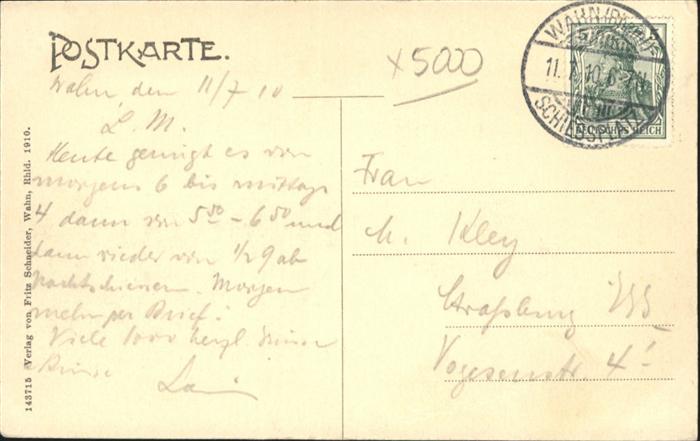 POSTKARTE.
× 5000
WAHN (RHEIN)
11.7.10.6-7N
SCHIESSPLATZ
DEUTSCHES REICH
Wahn den 11/7 10
L. M.
Heute genügt es von
morgens 6 bis mittags
4 dann von 5 50 – 6 50 und
dann wieder von 1/2 9 ab
Nachtschiessen. Morgen
mehr per Brief.
Viele 1000 herzl. Grüsse
Frau
M. Kley
Straßburg Els
Vogesenstr. 4
143715 Verlag von Fritz Schneider, Wahn, Rhld. 1910.